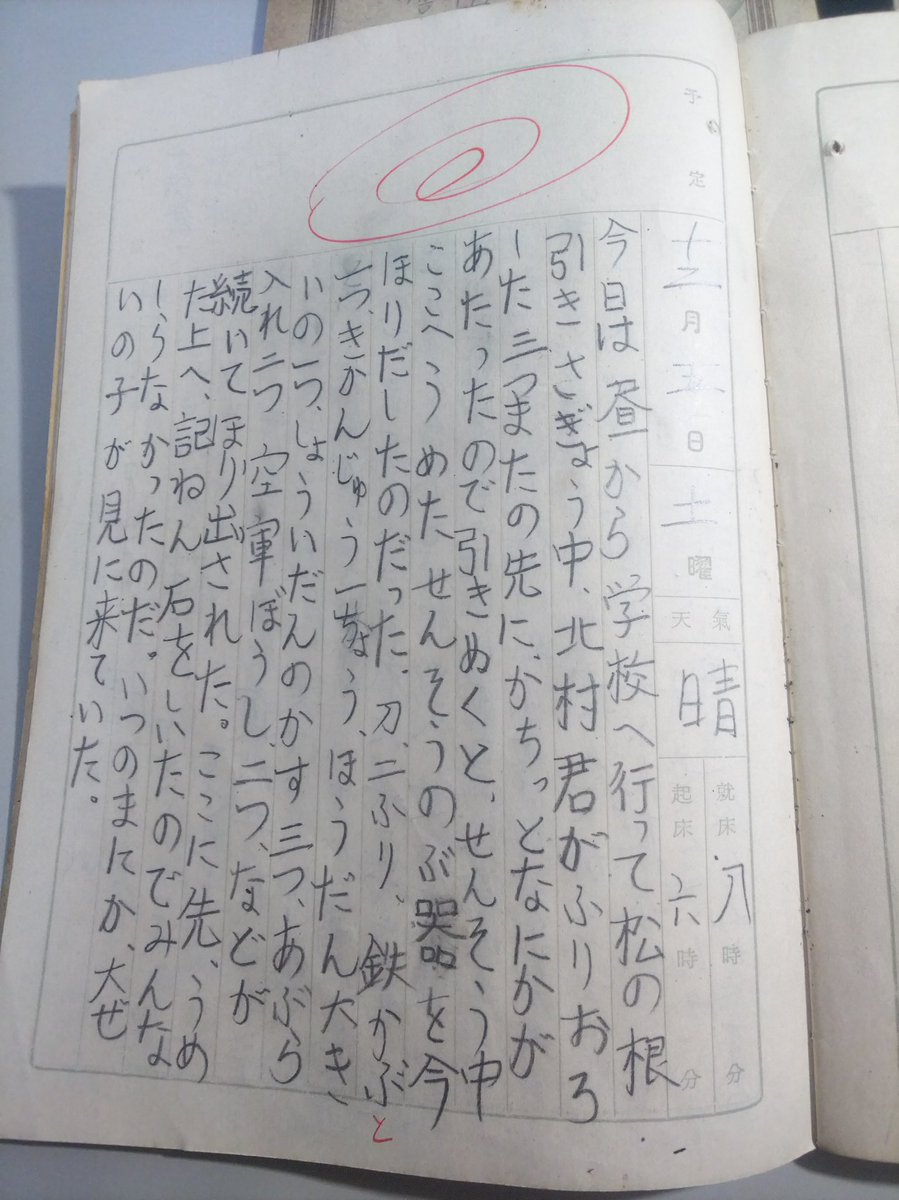 予定
十二月五日土曜
天氣
晴
就床八時 分
起床六時 分
今日は昼から学校へ行って松の根
引きさぎょう中、北村君がふりおろ
した三つまたの先に、かちっとなにかが
あたったので引きぬくと、せんそう中
ここへうめたせんそうのぶ器を今
ほりだしたのだった。刀、二ふり、鉄かぶと
一つ、きかんじゅう一ちょう、ほうだん大き
いの一つ、しょういだんのかす三つ、あぶら
入れ二つ 空軍ぼうし、二つ、などが
続いてほり出された。ここに先、うめ
た上へ、記ねん石をしいたのでみんな
しらなかったのだ。いつのまにか、大ぜ
いの子が見に来ていた。